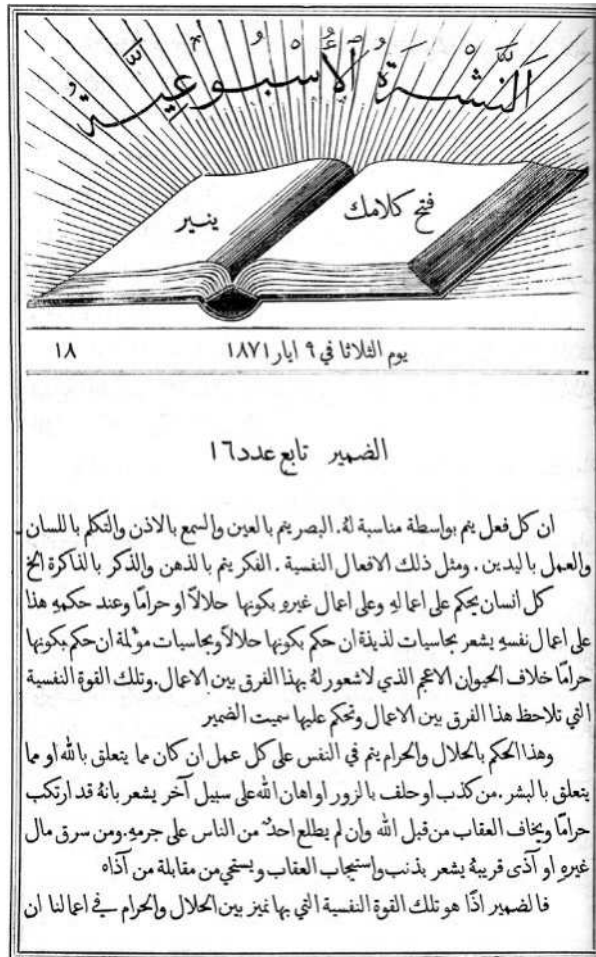 النشرة الاسبوعية
فتح كلامك
ينير
يوم الثلاثا في ٩ ايار ١٨٧١
١٨
الضمير تابع عدد ١٦
ان كل فعل يتم بواسطة مناسبة لهُ. البصر يتم بالعين والسمع بالاذن والتكلم باللسان
والعمل باليدين. ومثل ذلك الافعال النفسية. الفكر يتم بالذهن والذكر بالذاكرة الخ
كل انسان يحكم على اعمالهِ وعلى اعمال غيرهِ بكونها حلالاً او حرامًا وعند حكمهِ هذا
على اعمال نفسهِ يشعر بحاسيات لذيذة ان حكم بكونها حلالاً وبحاسيات مؤلمة ان حكم بكونها
حرامًا خلاف الحيوان الاعجم الذي لا شعور لهُ بهذا الفرق بين الاعمال. وتلك القوة النفسية
التي تلاحظ هذا الفرق بين الاعمال وتحكم عليها سميت الضمير
وهذا الحكم بالحلال والحرام يتم في النفس على كل عمل ان كان مما يتعلق بالله او مما
يتعلق بالبشر. من كذب او حلف بالزور او اهان الله على سبيل آخر يشعر بانهُ قد ارتكب
حرامًا ويخاف العقاب من قبل الله وان لم يطلع احدٌ من الناس على جرمهِ. ومن سرق مال
غيرهِ او آذى قريبهُ يشعر بذنب واستيجاب العقاب ويستحي من مقابلة من آذاه
فالضمير اذًا هو تلك القوة النفسية التي بها نميز بين الحلال والحرام في اعمالنا ان